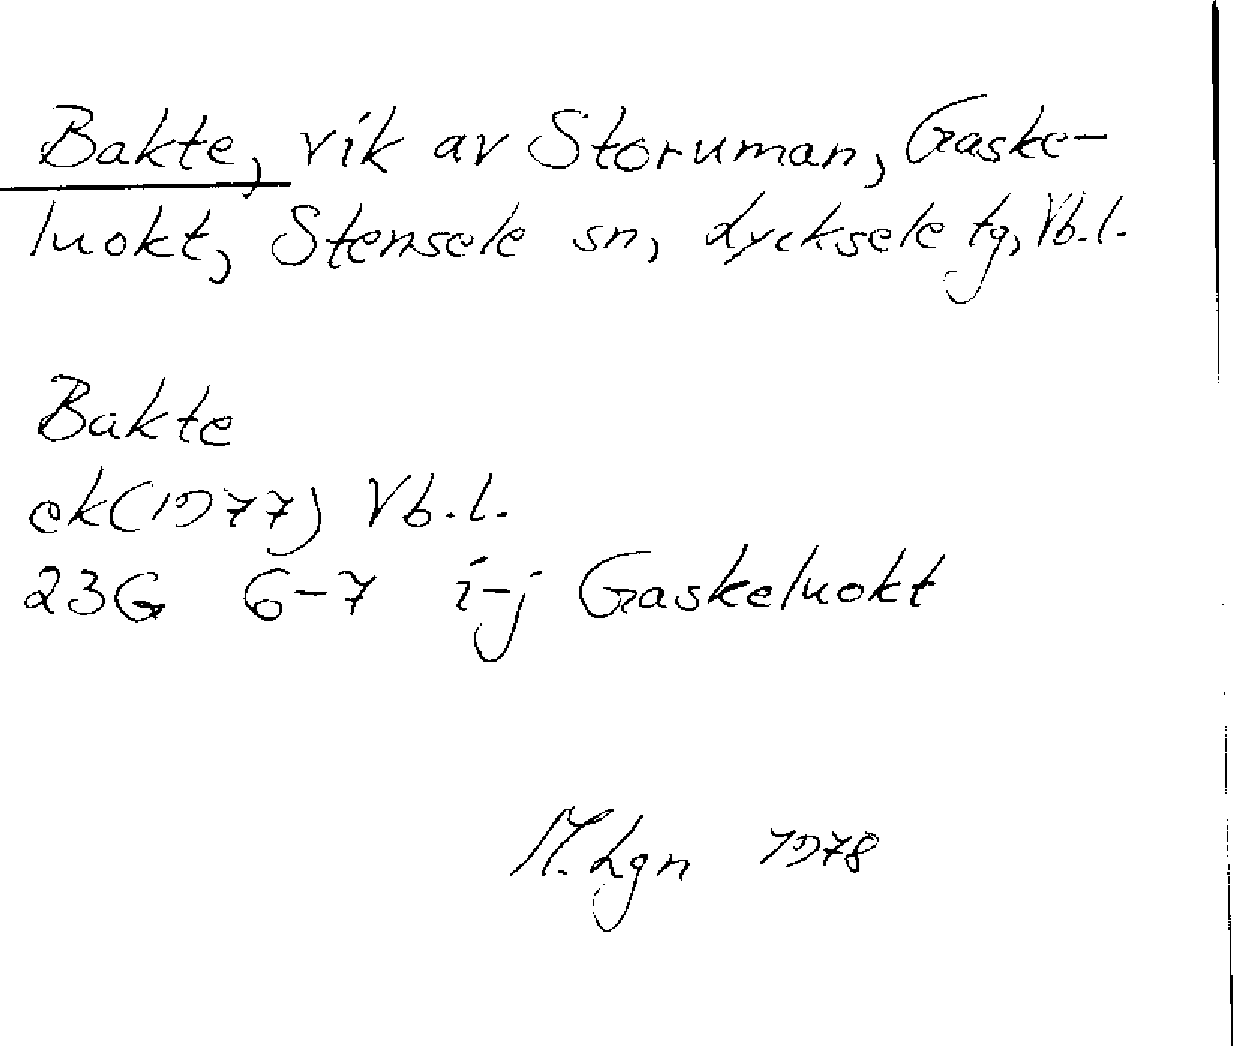 Bakte, vik av Storuman, Gaske-
luokt, Stensele sn, Lycksele tg, Vb.l.
Bakte
ek(1977) Vb.l.
23G 6-7 i-j Gaskeluokt
M. Lgn 1978